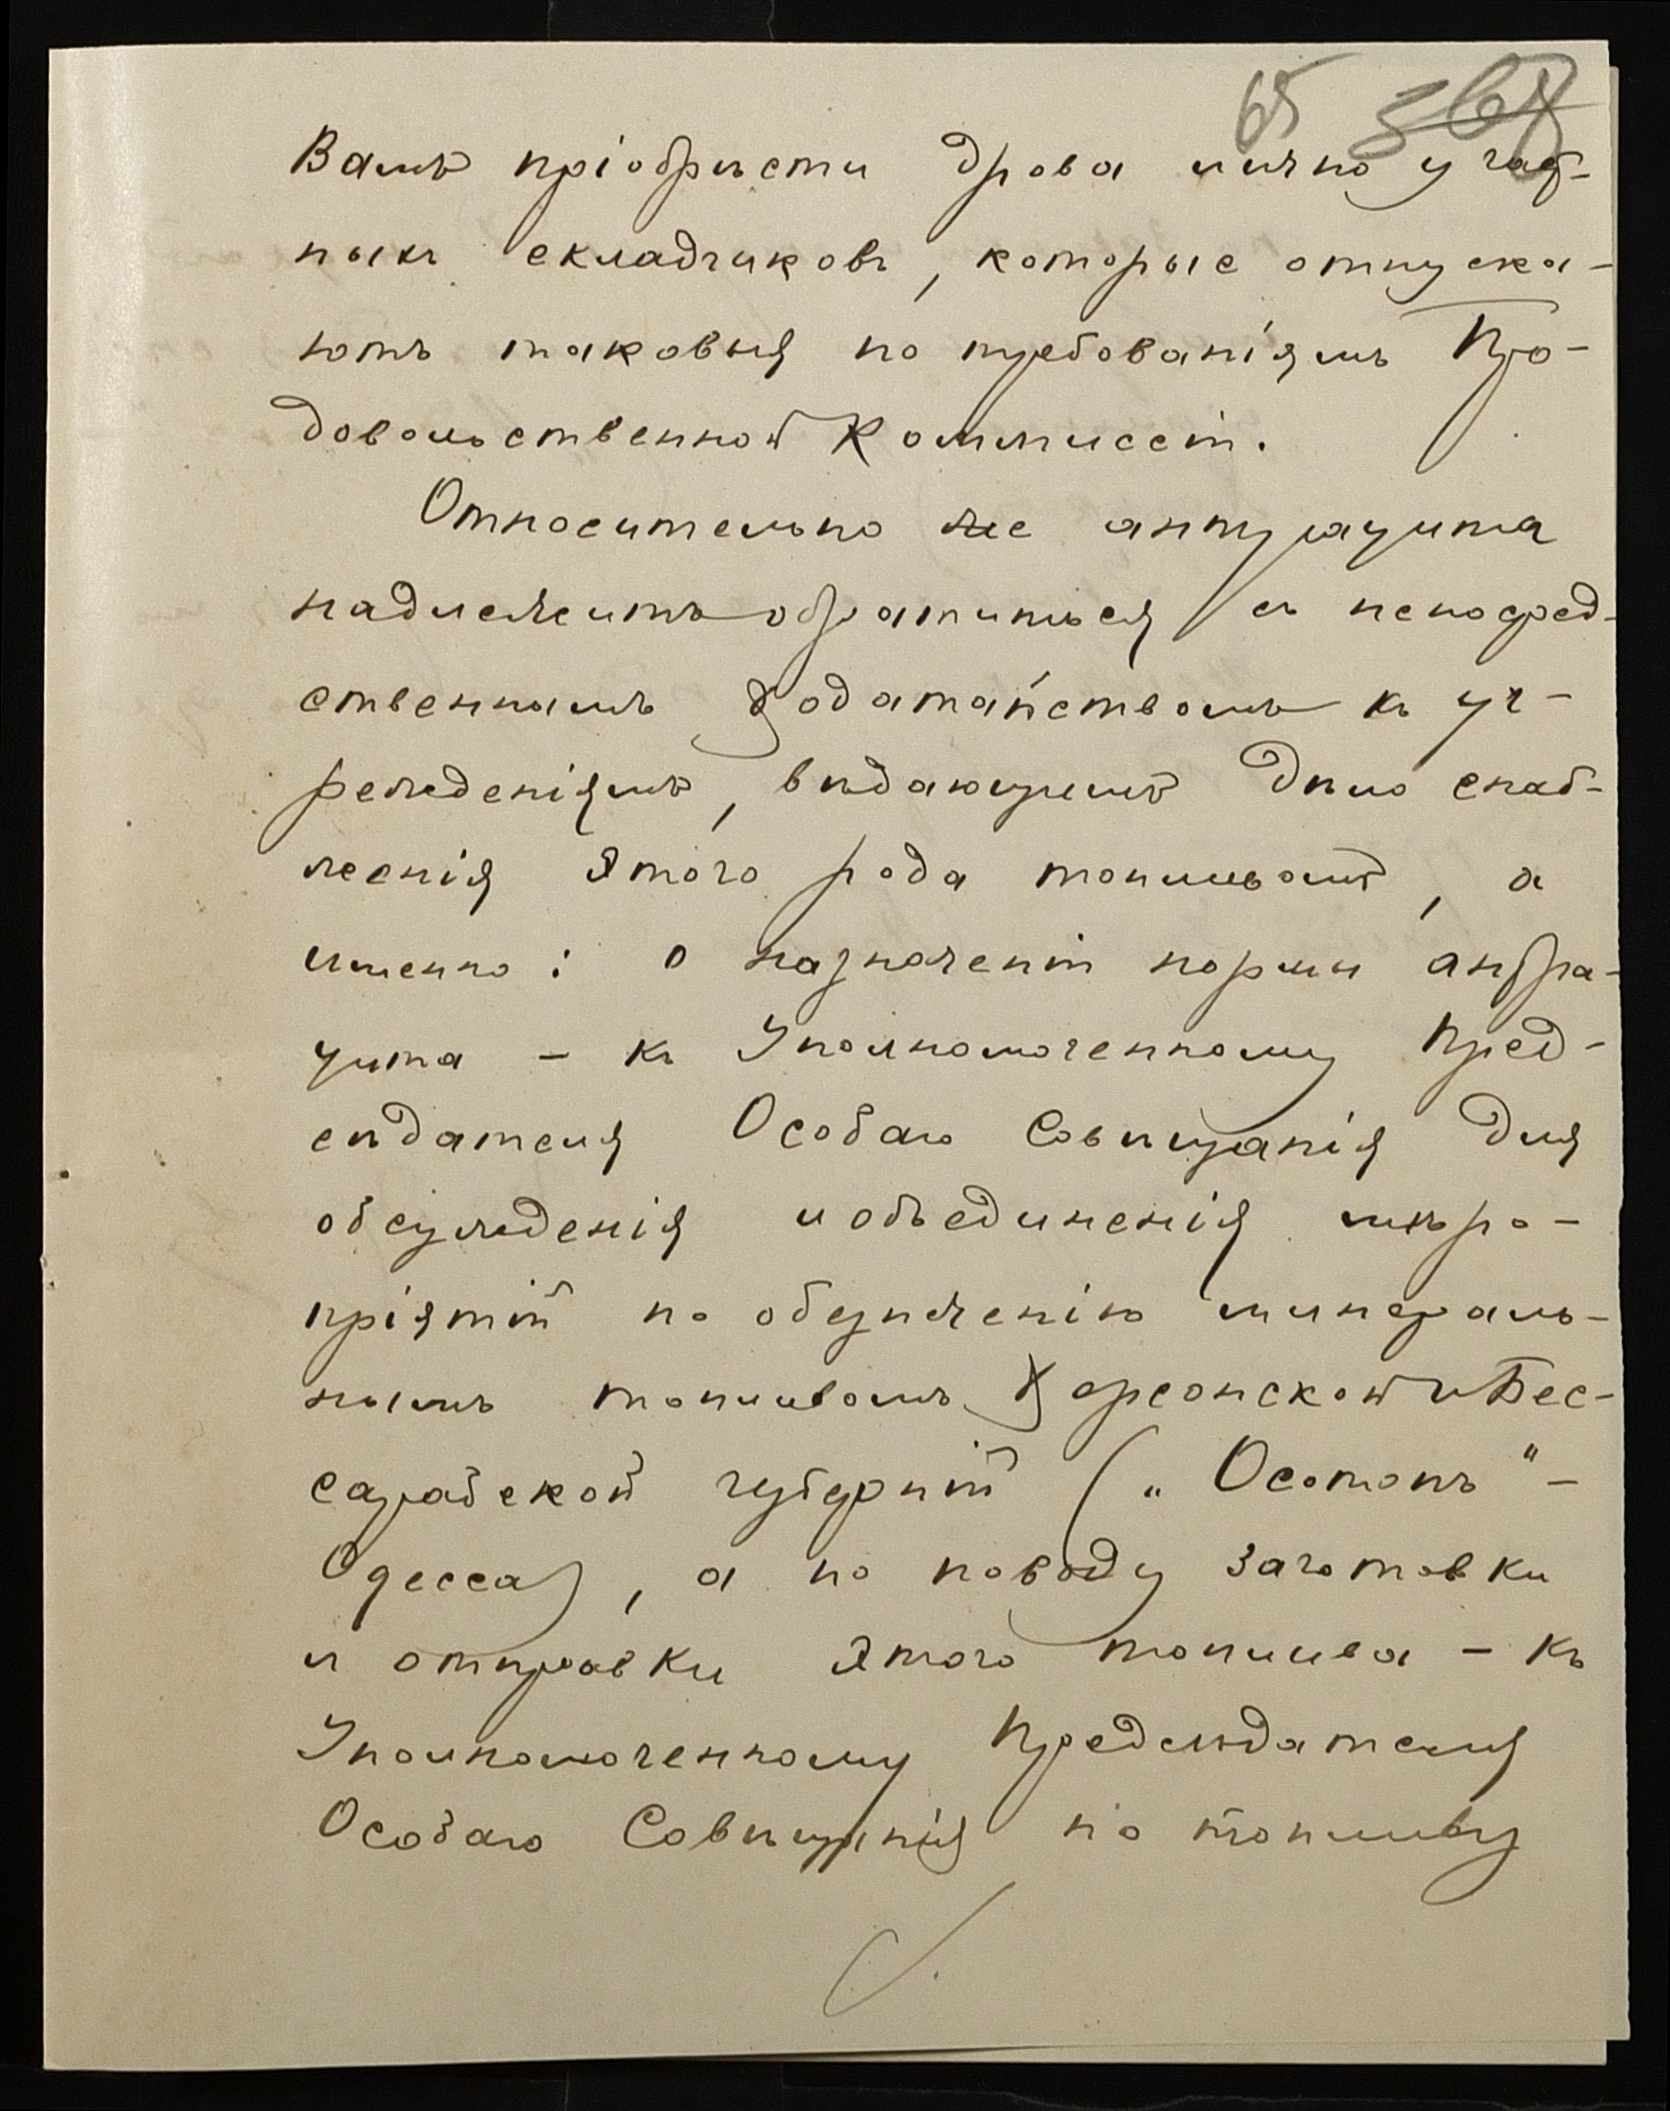 65 367
Вамъ пріобрѣсти дрова лично у част-
ныхъ складчиковъ, которые отпуска-
ютъ таковыя по требованіямъ Про-
довольственной Коммиссіи.
Относительно же антрацита
надлежитъ обратиться съ непосред-
ственнымъ ходатайствомъ къ уч-
режденіямъ, вѣдающимъ дѣло снаб-
женія этого рода топливомъ, а
именно: о назначеніи нормы антра-
цита - къ Уполномоченному Пред-
сѣдателя Особаго Совѣщанія для
обсужденія и объединенія мѣро-
пріятій по обезпеченію минераль-
нымъ топливомъ Херсонской и Бес-
сарабской губерній („Осотопъ“-
Одесса), а по поводу заготовки
и отправки этого топлива - къ
Уполномоченному Предсѣдателя
Особаго Совѣщанія по топливу